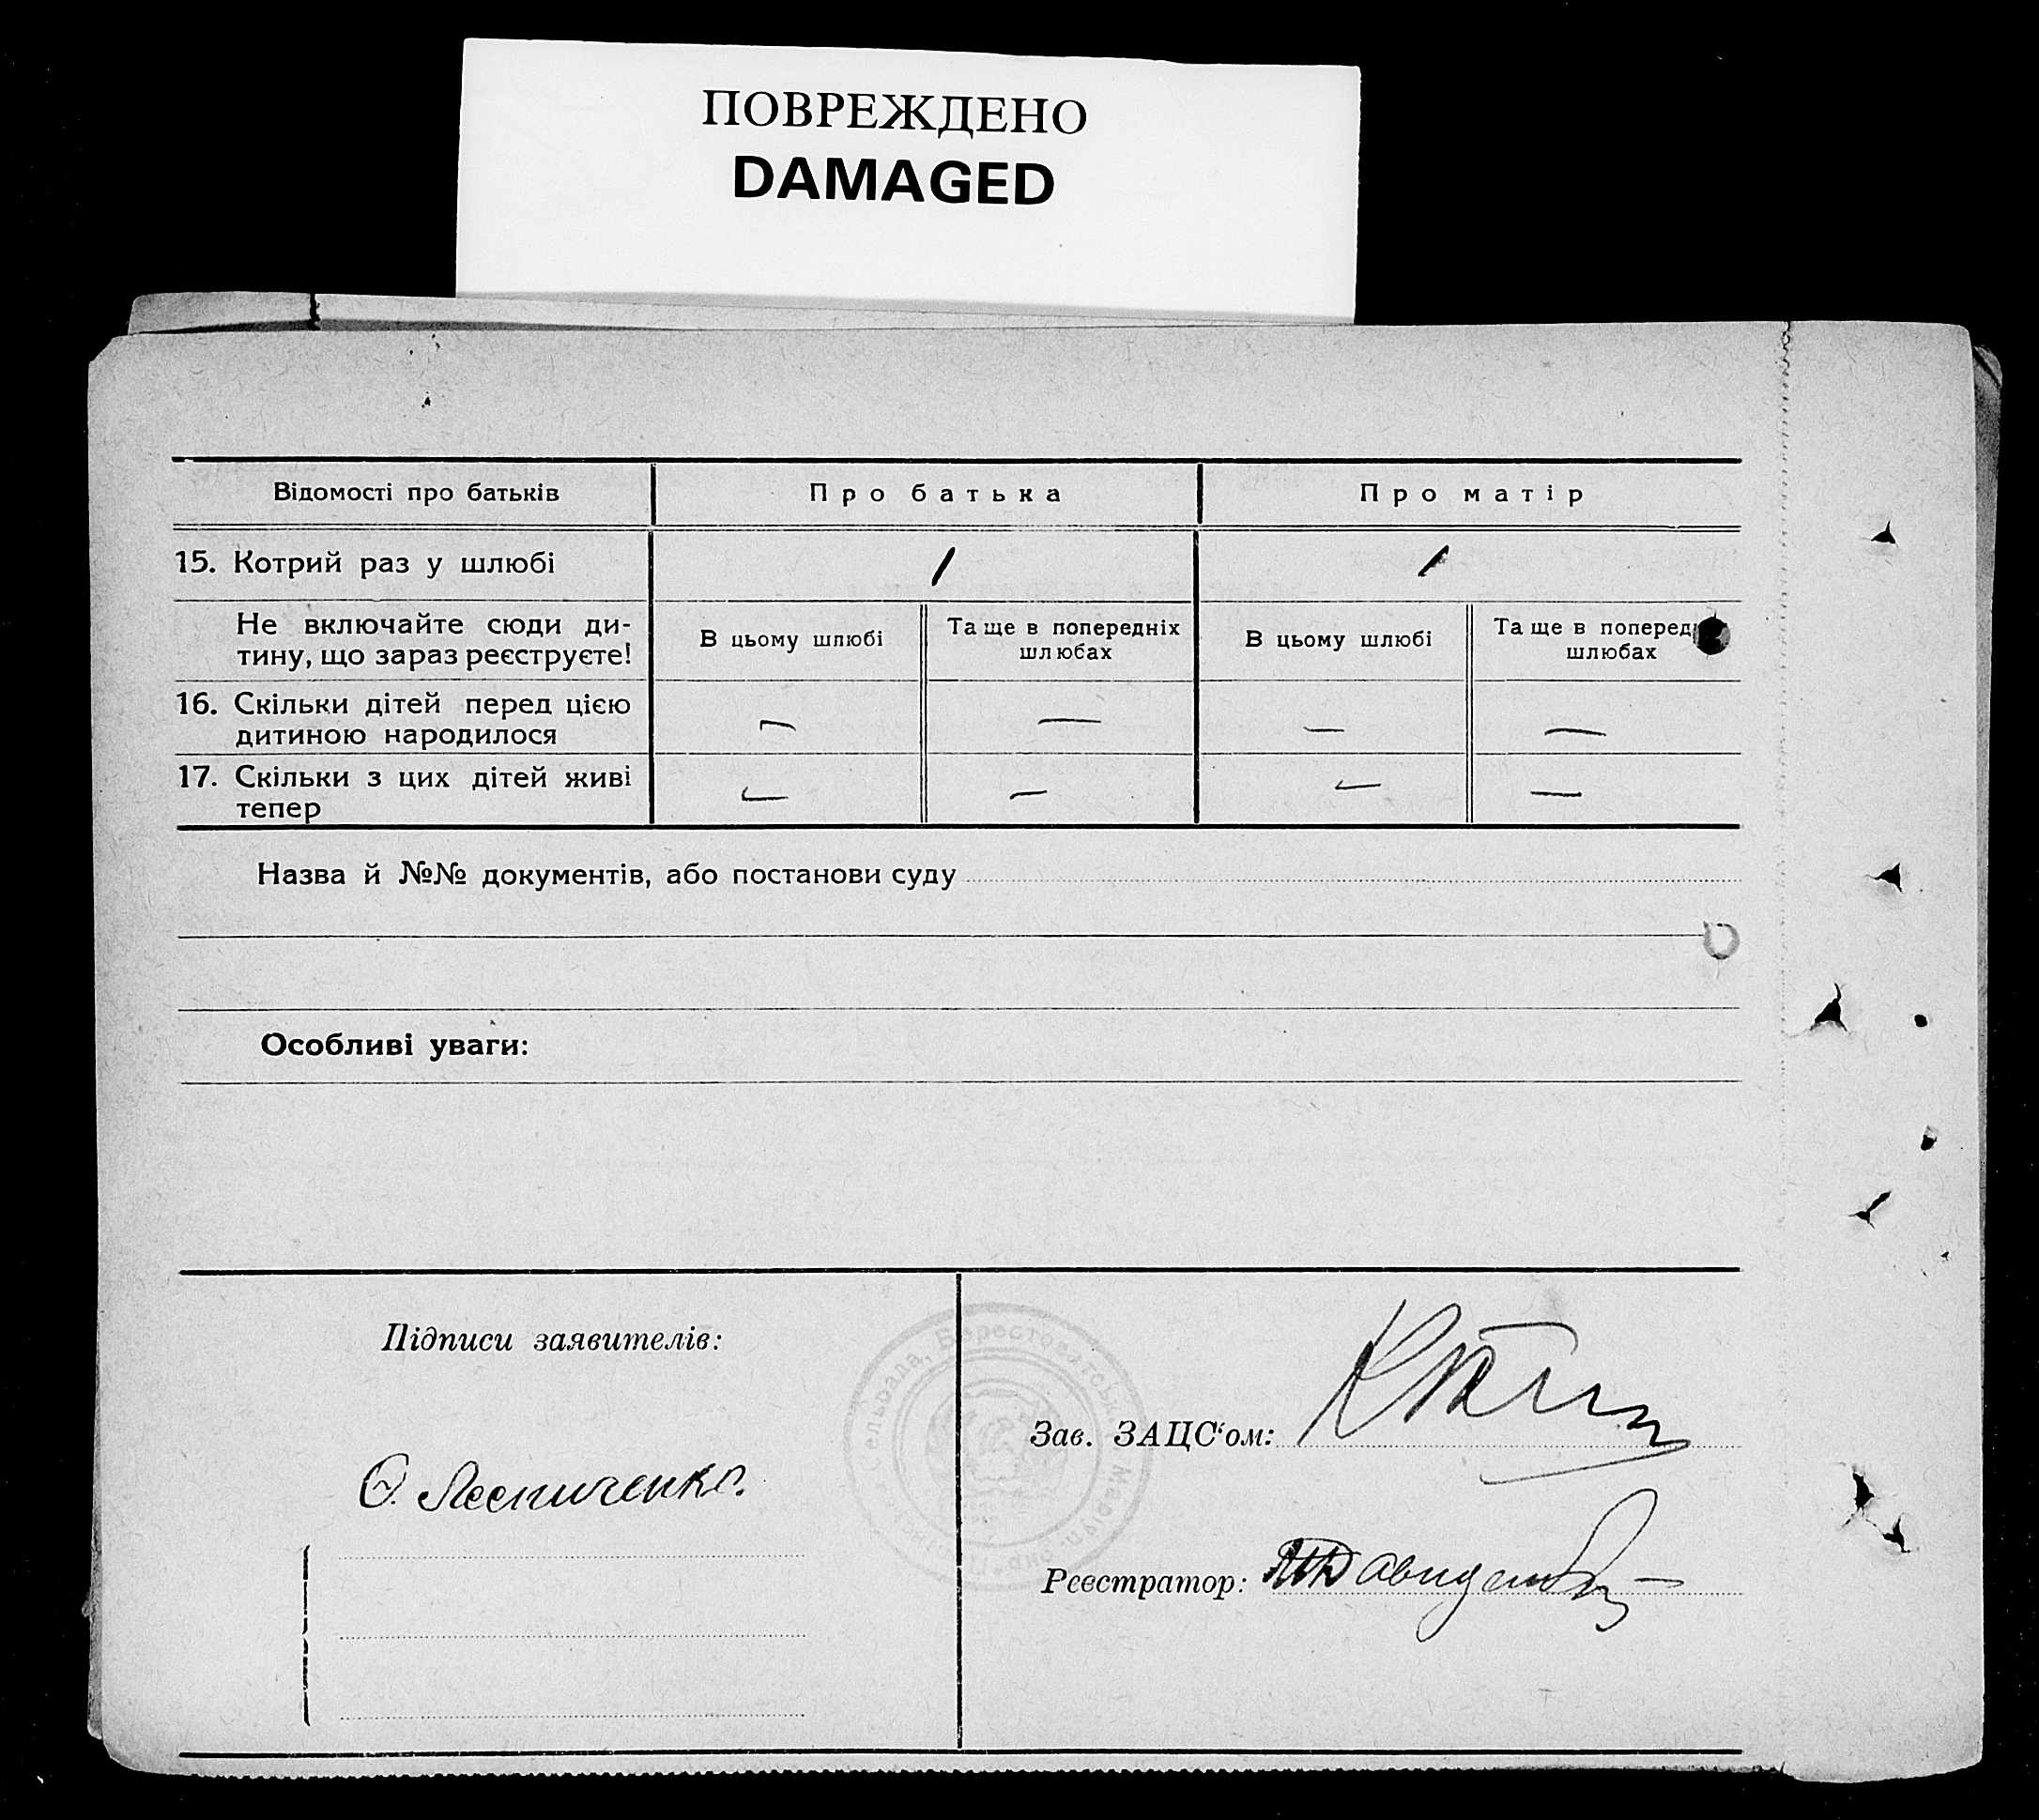 ПОВРЕЖДЕНО
DAMAGED
Відомості про батьків
Про батька
Про матір
15. Котрий раз у шлюбі
1
1
Не включайте сюди ди-
тину, що зараз реєструєте!
В цьому шлюбі
Та ще в попередніх
шлюбах
В цьому шлюбі
Та ще в поперед
шлюбах
16. Скільки дітей перед цією
дитиною народилося
— — — —
17. Скільки з цих дітей живі
тепер
— — — —
Назва й №№ документів, або постанови суду
Особливі уваги:
Підписи заявителів:
Сельрада, Берестоватськ Маріуп. окр.
Зав. ЗАЦС‘ом:
Реєстратор: